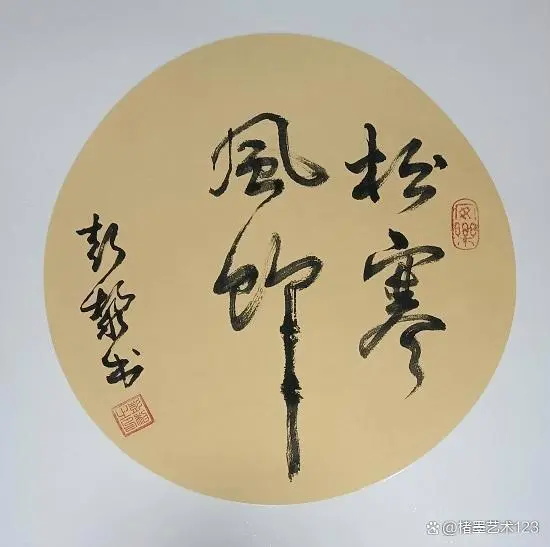 松寒
風節
彭书
楮墨艺术123